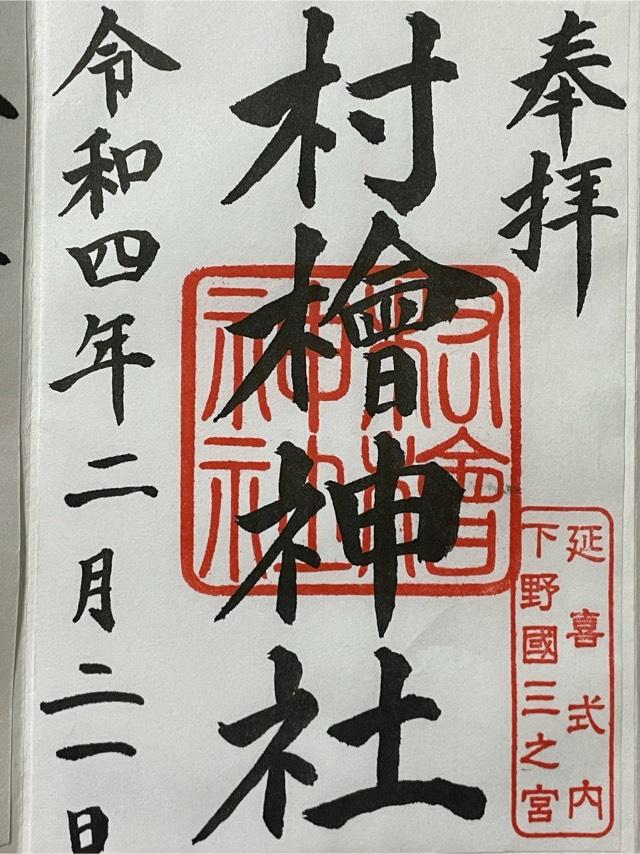 奉拝
村檜神社
令和四年二月二一日
村檜
神社
延喜式内
下野國三之宮